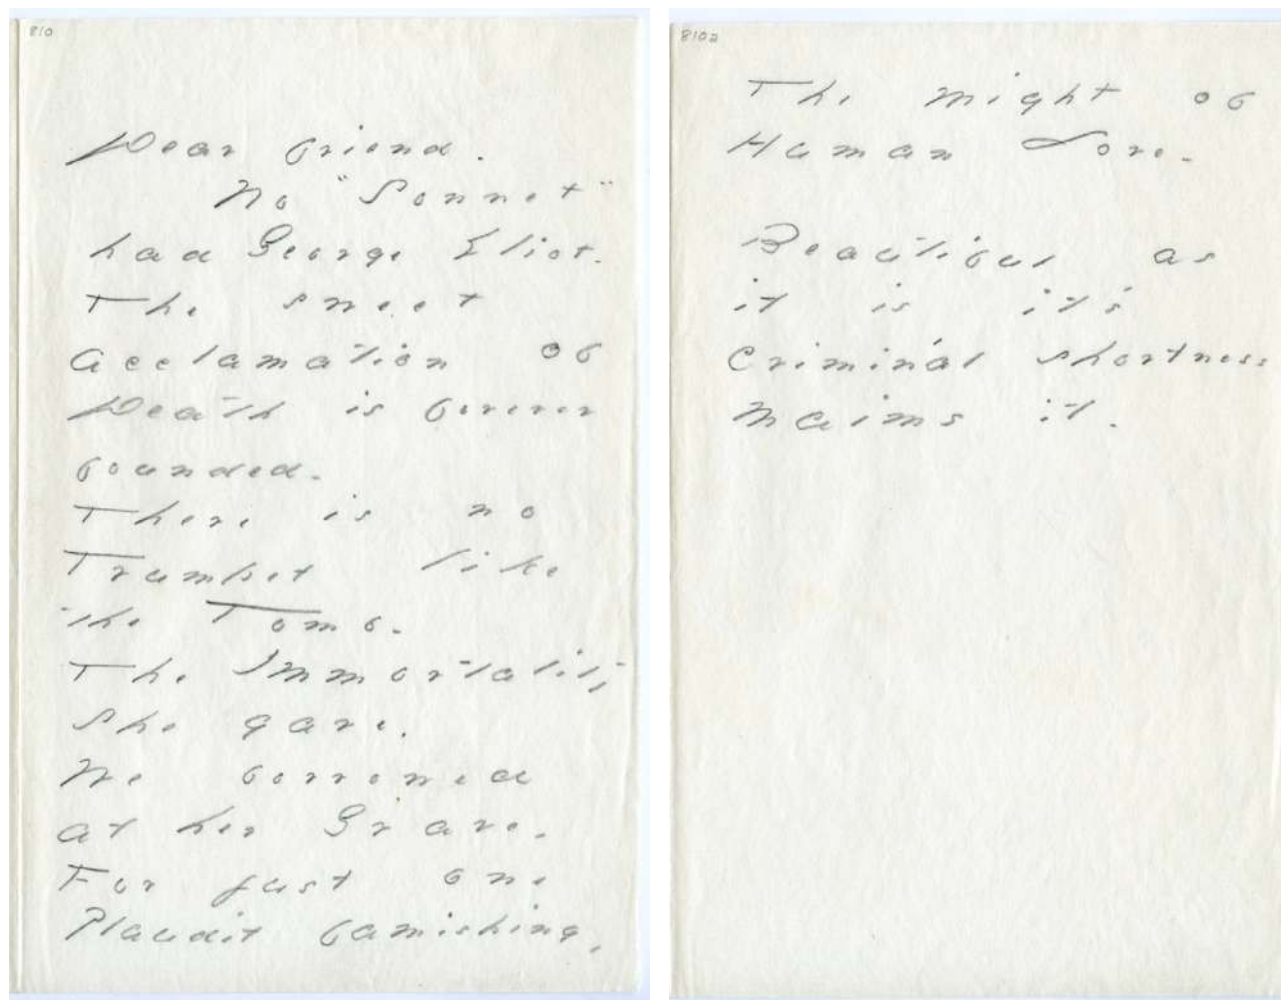 810
Dear friend.
No "Sonnet"
had George Eliot.
The sweet
acclamation of
Death is forever
bounded.
There is no
Trumpet like
the Tomb.
The Immortality
she gave.
We borrowed
at her Grave.
For just one
Plaudit famishing,
810a
The might of
Human Love.
Beautiful as
it is it's
criminal shortness
maims it.